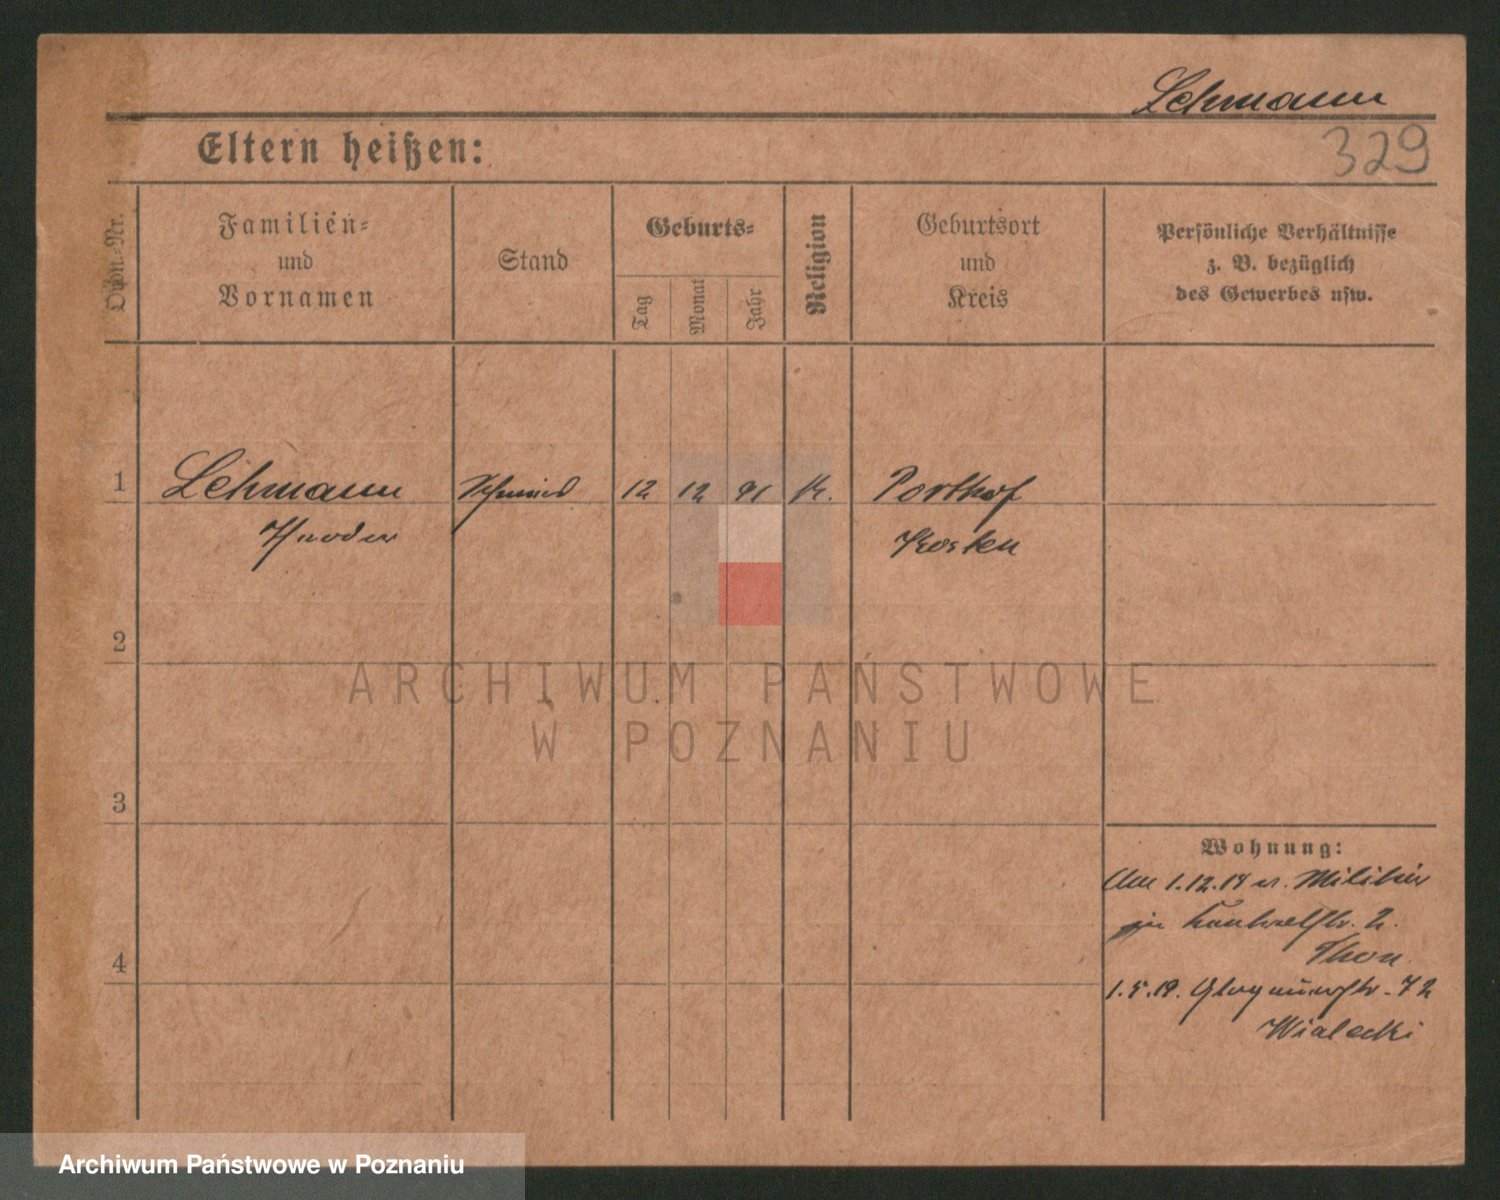 Lehmann
329
Eltern heißen:
Ordn.-Nr.
Familien-
und
Vornamen
Stand
Geburts-
Tag
Monat
Jahr
Religion
Geburtsort
und
Kreis
Persönliche Verhältnisse
z. B. bezüglich
des Gewerbes usw.
1
Lehmann Schmied 12 12 91 k.
Theodor
2
3
4
Wohnung:
Am 1.12.18 v. Militär
2.
Thon
1.5.19. Glogauerstr. 72
Wialecki
ARCHIWUM PAŃSTWOWE
W POZNANIU
Archiwum Państwowe w Poznaniu